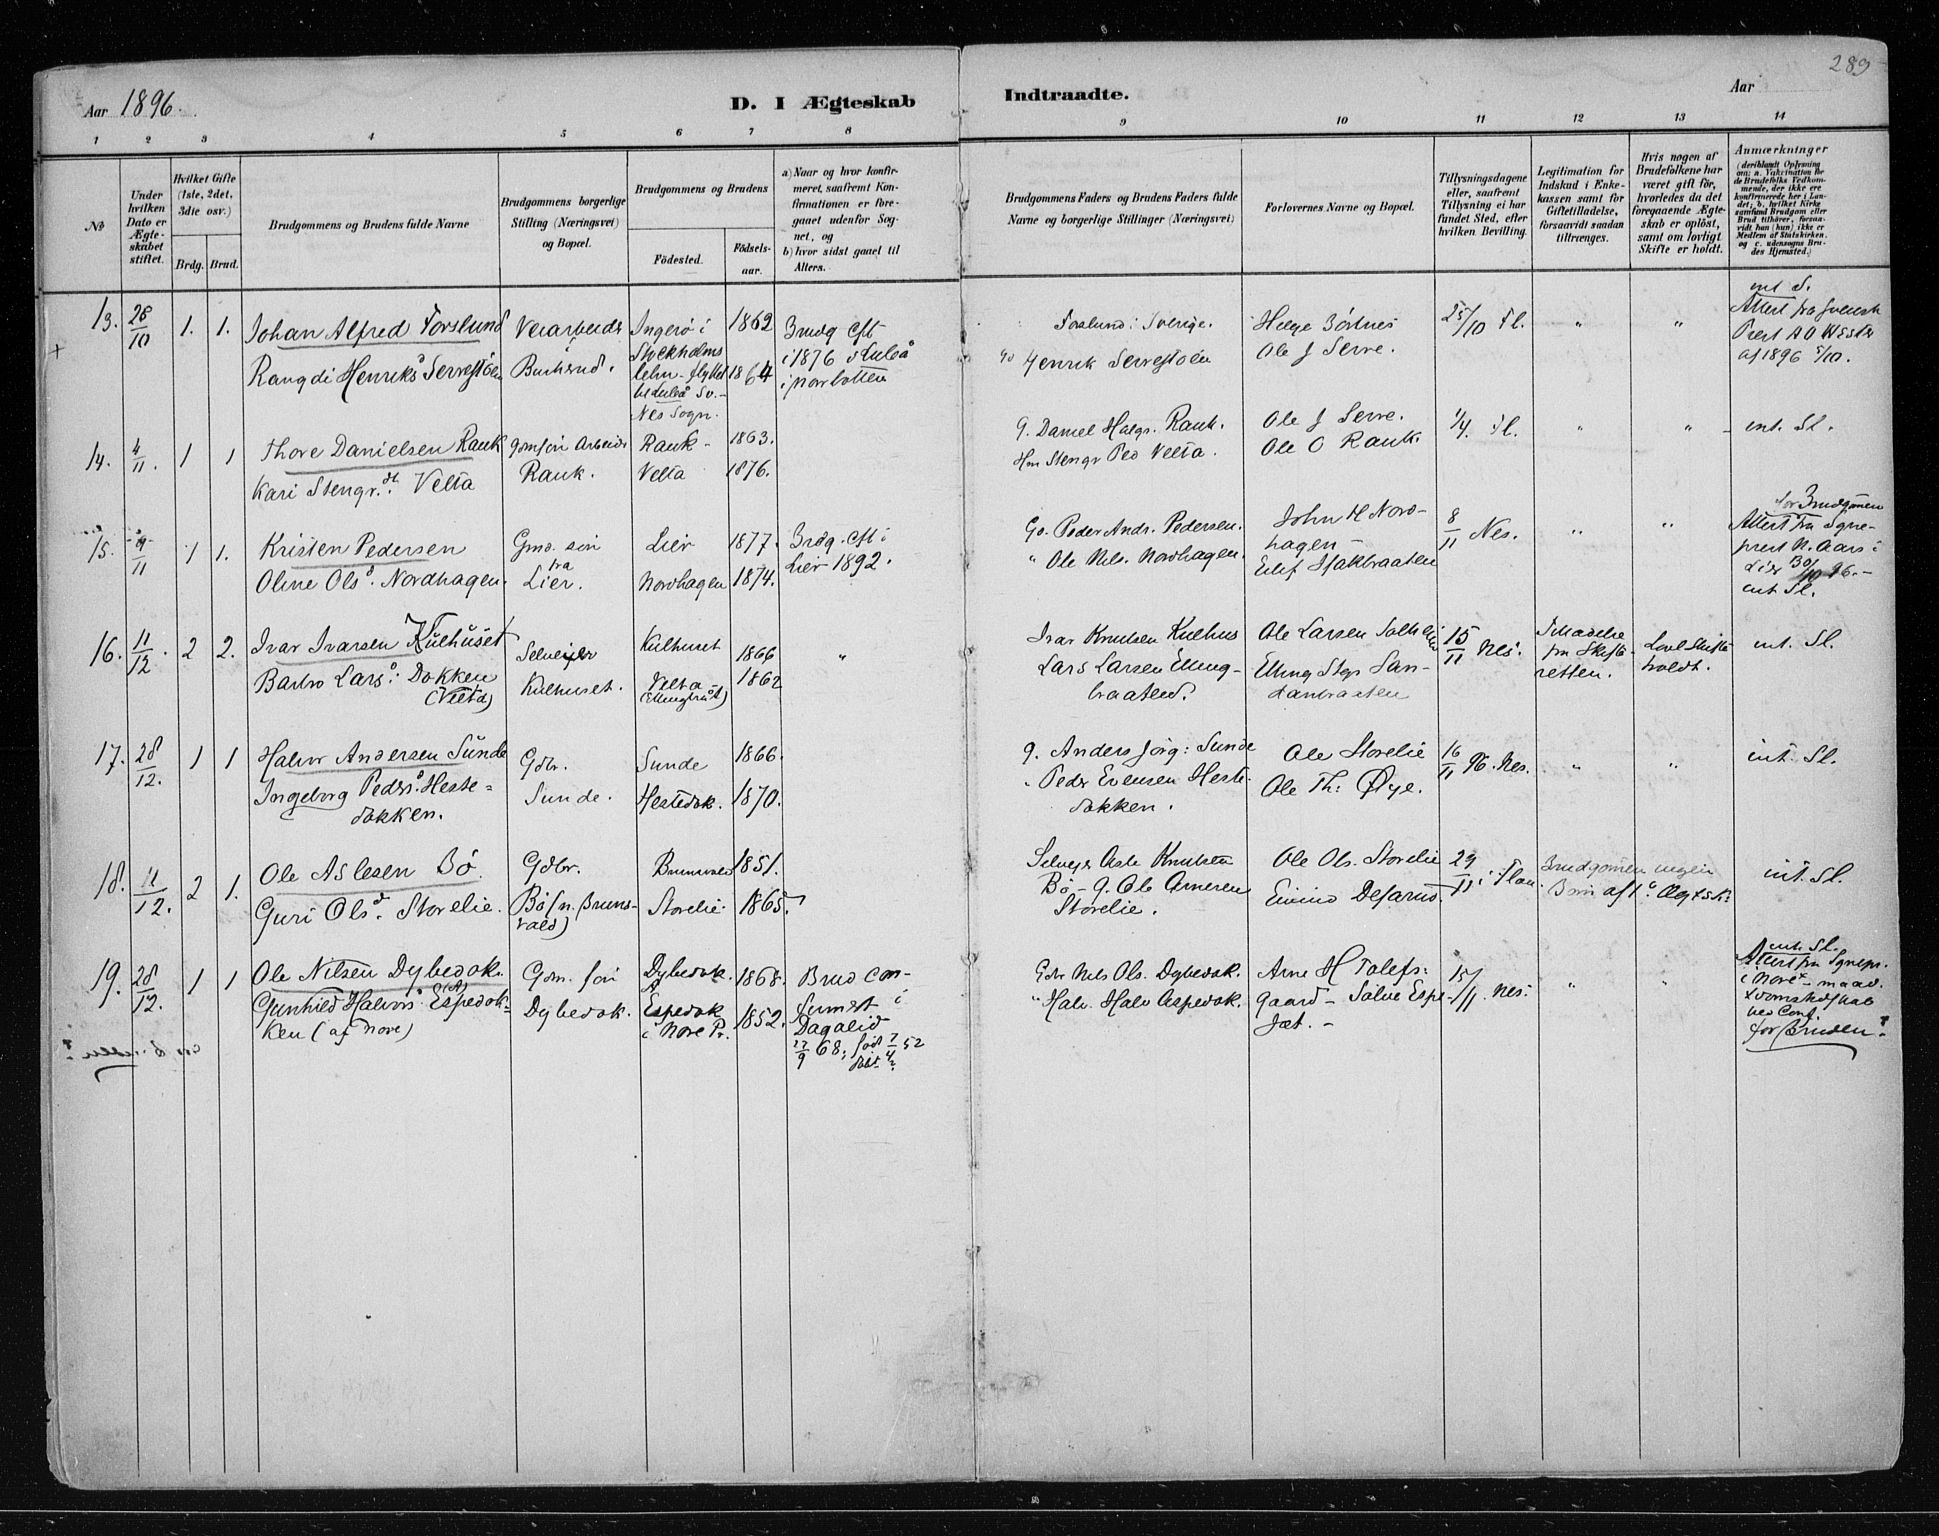 289
Aar 1896.
D. I Ægteskab
Indtraadte.
Aar
1 2 3 4 5 6 7 8 9 10 11 12 13 14
No
Under hvilken Dato er Ægteskabet stiftet.
Hvilket Gifte (1ste, 2det, 3die osv.)
Brdg. Brud.
Brudgommens og Brudens fulde Navne
Brudgommens borgerlige Stilling (Næringsvei) og Bopæl.
Brudgommens og Brudens
Fødested.
Fødselsaar.
a) Naar og hvor konfirmeret, saafremt Konfirmationen er foregaaet udenfor Sognet, og
b) hvor sidst gaaet til Alters.
Brudgommens Faders og Brudens Faders fulde Navne og borgerlige Stillinger (Næringsvei)
Forlovernes Navne og Bopæl.
Tillysningsdagene eller, saafremt Tillysning ei har fundet Sted, efter hvilken Bevilling.
Legitimation for Indskud i Enkekassen samt for Giftetilladelse, forsaavidt saadan tiltrænges.
Hvis nogen af Brudefolkene har været gift før, hvorledes da det foregaaende Ægteskab er opløst, samt om lovligt Skifte er holdt.
Anmærkninger
(deriblandt Oplysning om: a. Vakcination for de Brudefolks Vedkommende, der ikke ere konfirmerede her i Landet; b. hvilket Kirkesamfund Brudgom eller Brud tilhører, forsaavidt han (hun) ikke er Medlem af Statskirken. og c. udensogns Brudes Hjemsted.)
13. 28/10 1. 1. Johan Alfred Forslund
Rangdi Henriks Serrestöen
Ingerö i Stockholms lehn - flyttet til Luleå Sv. -
Nes Sogn.
1862
1864
Brudg Cft i 1876 i Luleå i Norrbotten
Forslund i Sverige.
Henrik Serrestöen
Helge Börtnes
Ole J Serre.
25/10 Fl. " "
int S.
Attest fra Svensk Prest
af 1896 /10.
14. 4/11. 1 1 Thore Danielsen Rauk
Kari Stengr. dt. Velta
Rauk.
Rauk -
Velta
1863.
1876.
G. Daniel Halgr. Rauk.
Stengr Ped Velta.
Ole J Serre.
Ole O Rauk.
Fl. " "
int. Sl.
15. 9/11 1 1. Kristen Pedersen
Oline Ols. Nordhagen.
Gmd. sön fra Lier.
Lier
Nordhagen
1877.
1874.
Brdg. Cft i Lier 1892.
Peder Ands. Pedersen.
" Ole Nils. Nordhagen.
John H Nordhagen -
8/11 Nes. " "
for Brudgomen
Attest fra Sogneprest N. Aars i Lier 30/10 96. -
int. Sl.
16. 11/12. 2 2. Ivar Ivarsen Kulhuset
Barbro Lars: Dokken (Velta)
Selveier
Kulhuset.
Kulhuset
Velta -
1866
1862
"
Ivar Knutsen Kulhus
Lars Larsen Ellingbraaten.
Ole Larsen
Elling Stgr Sandanbraaten
15/11 Nes.
fra Skifteretten.
Lovl Skifte holdt.
int. Sl.
17. 28/12. 1 1 Halvor Andersen Sunde
Ingeborg Peders. Hestedokken.
Gdbr.
Sunde.
Sunde
Hestedok.
1866.
1870.
g. Anders Jörg: Sunde
" Peder Evensen Hestedokken.
Ole Storelie
Ole Th: Øye.
16/11 96. Nes. " "
int. Sl.
18. 11/12. 2 1. Ole Aslesen Bö.
Guri Ols. d. Storelie.
Gdbr.
Bö (n. Brunsvald)
Storelie
1851.
1865.
Selveier Asle Knutsen Bö - g. Ole Arnesen Storelie.
Ole Ols. Storelie
29/11
int. Sl.
19. 28/12. 1 1 Ole Nilsen Dybedok.
Gunhild Halvors. Espedokken (af Nore)
Gdm. sön
Dybedok.
Dybedok.
Espedok i Nore Pr.
1868.
1852.
Brud confirmert i Dagalid 27/9 68, född 7/4 52
Gdbr Nils Ols. Dybedok.
" Halv. Halv Aspedok.
Arne H Tolefsgaard -
15/11 Nes. " "
int. Sl.
Attest fra Sognepr. i Nore
ved Conf.
for Bruden.